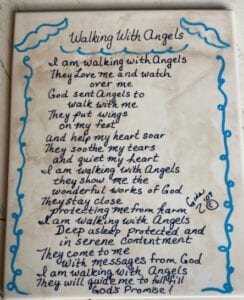 Walking With Angels
I am walking with Angels
They Love me and watch
over me
God sent Angels to
walk with me
They put wings
on my feet
and help my heart soar
They soothe my tears
and quiet my heart
I am walking with Angels
they show me the
wonderful works of God
They stay close
protecting me from harm
I am walking with Angels
Deep asleep protected and
in serene contentment
They come to me
with messages from God
I am walking with Angels
They will guide me to fulfill
God's Promise!